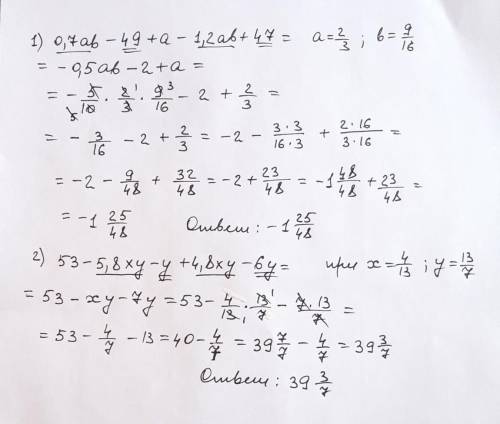 1) 0,7ab - 49 + a - 1,2ab + 47 = a = 2/3 ; b = 9/16
= - 0,5ab - 2 + a =
= - 5/10 · 2/3 · 9/16 - 2 + 2/3 =
= - 3/16 - 2 + 2/3 = - 2 - 3·3/16·3 + 2·16/3·16 =
= - 2 - 9/48 + 32/48 = - 2 + 23/48 = - 1 48/48 + 23/48 =
= - 1 25/48 Ответ: - 1 25/48
2) 53 - 5,8xy - y + 4,8xy - 6y = при x = 4/13 ; y = 13/7
= 53 - xy - 7y = 53 - 4/13 · 13/7 - 7·13/7 =
= 53 - 4/7 - 13 = 40 - 4/7 = 39 7/7 - 4/7 = 39 3/7
Ответ: 39 3/7